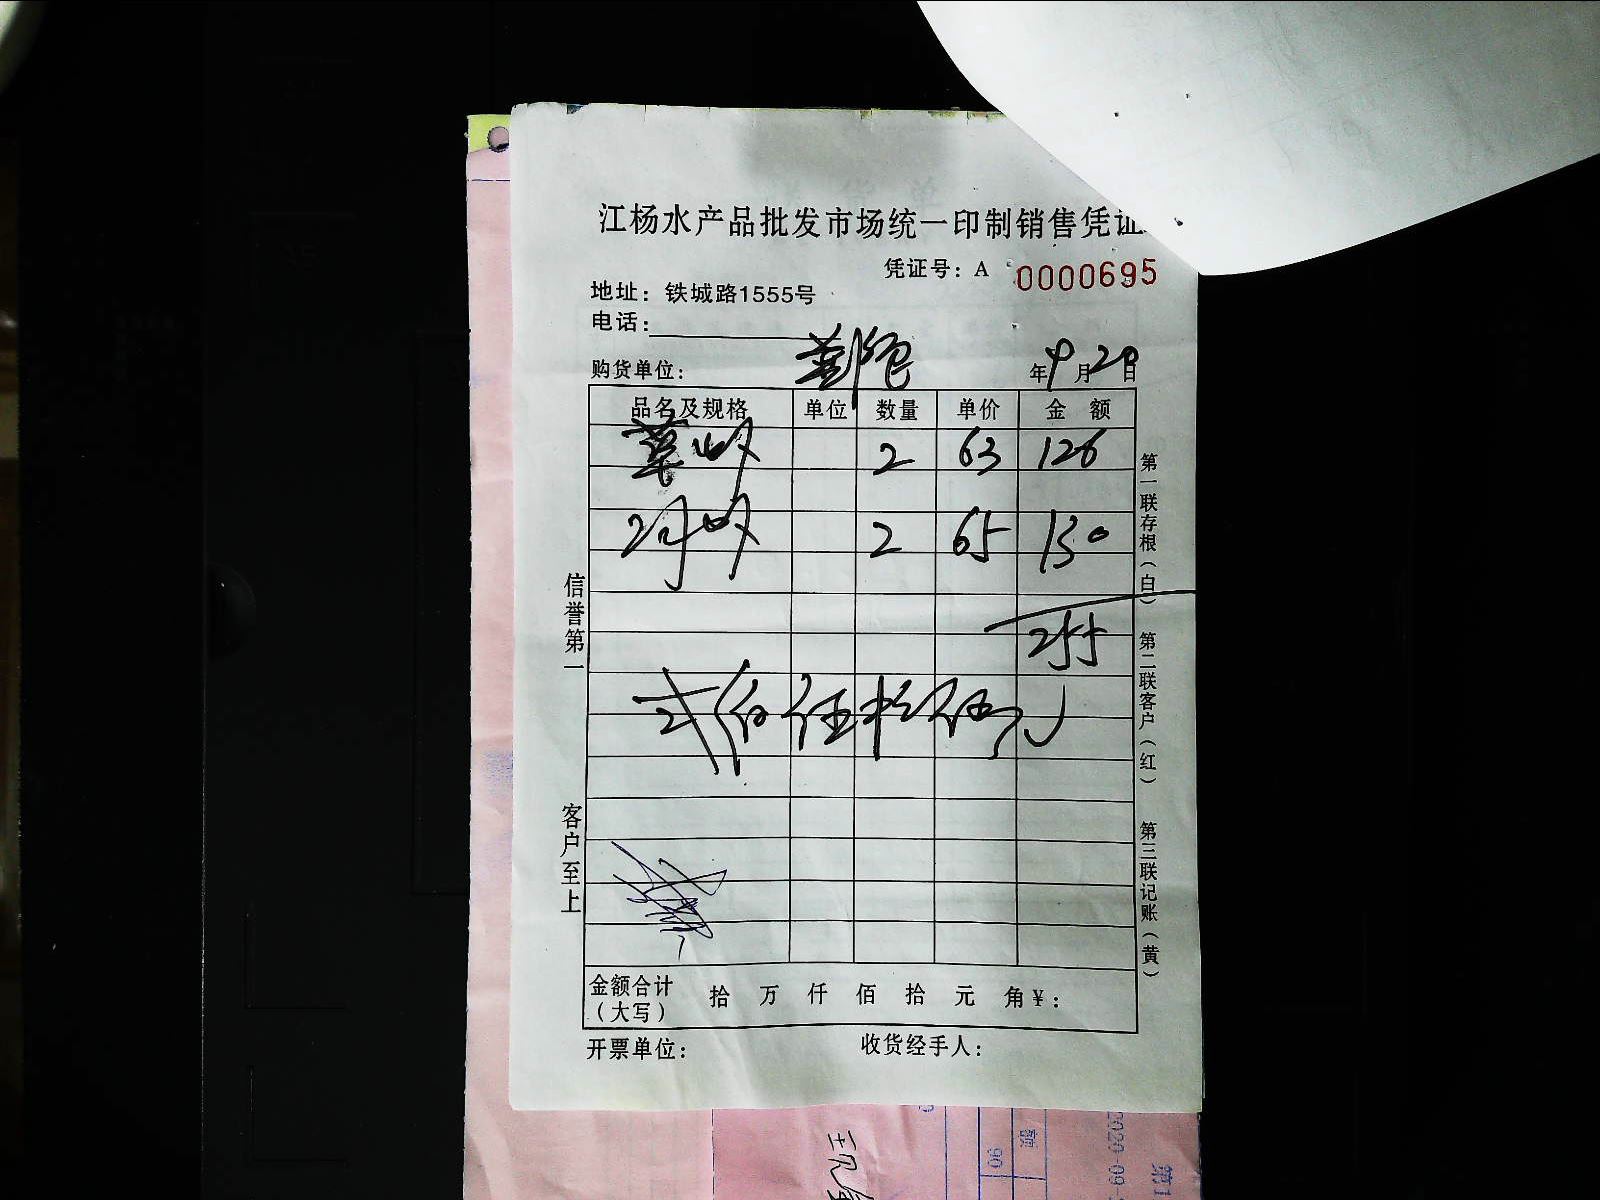 江杨水产品批发市场统一印制销售凭证
凭证号：A 0000695
地址：铁城路1555号
电话：
购货单位： 年 9 月 20 日
品名及规格 单位 数量 单价 金 额
草虾 2 63 126
2 65 130
255
弍佰伍拾伍元
金额合计（大写） 拾 万 仟 佰 拾 元 角 ¥：
开票单位： 收货经手人：
信誉第一
客户至上
第一联存根（白）
第二联客户（红）
第三联记账（黄）
90
额
2020-09-
第1